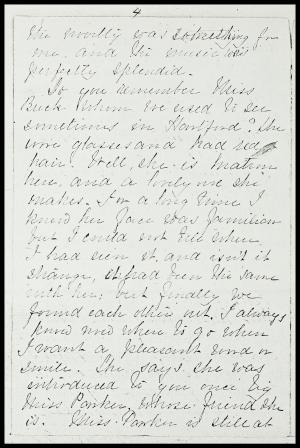 4
the novelty was interesting for
me, and the music was
perfectly splendid.
Do you remember Miss
Buck whom we used to see
sometimes in Hartford? She
wore glasses and had red
hair. Well, she is matron
here, and a lovely one she
makes. For a long time I
knew her face was familiar
but I could not tell where
I had seen it, and isn't it
strange, it had been the same
with her; but finally we
found each other out. I always
know now where to go when
I want a pleasant word or
smile. She says she was
introduced to you once by
Miss Parker, whose friend she
is. Miss Parker is still at